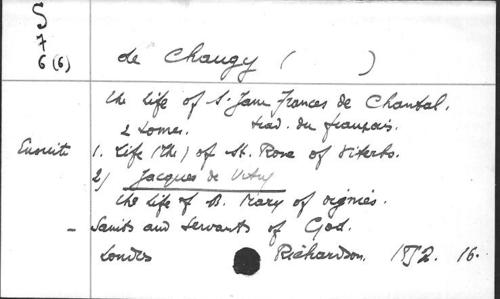 S
7
6 (6)
de Chaugy ( )
the life of S. Jane Frances de Chantal.
2 tomes. trad. du français.
Ensuite 1. Life (The) of St. Rose of Viterbo.
2) Jacques de Vitry
the life of B. Mary of Oignies.
- Saints and Servants of God.
Londres Richardson. 1852. 16.